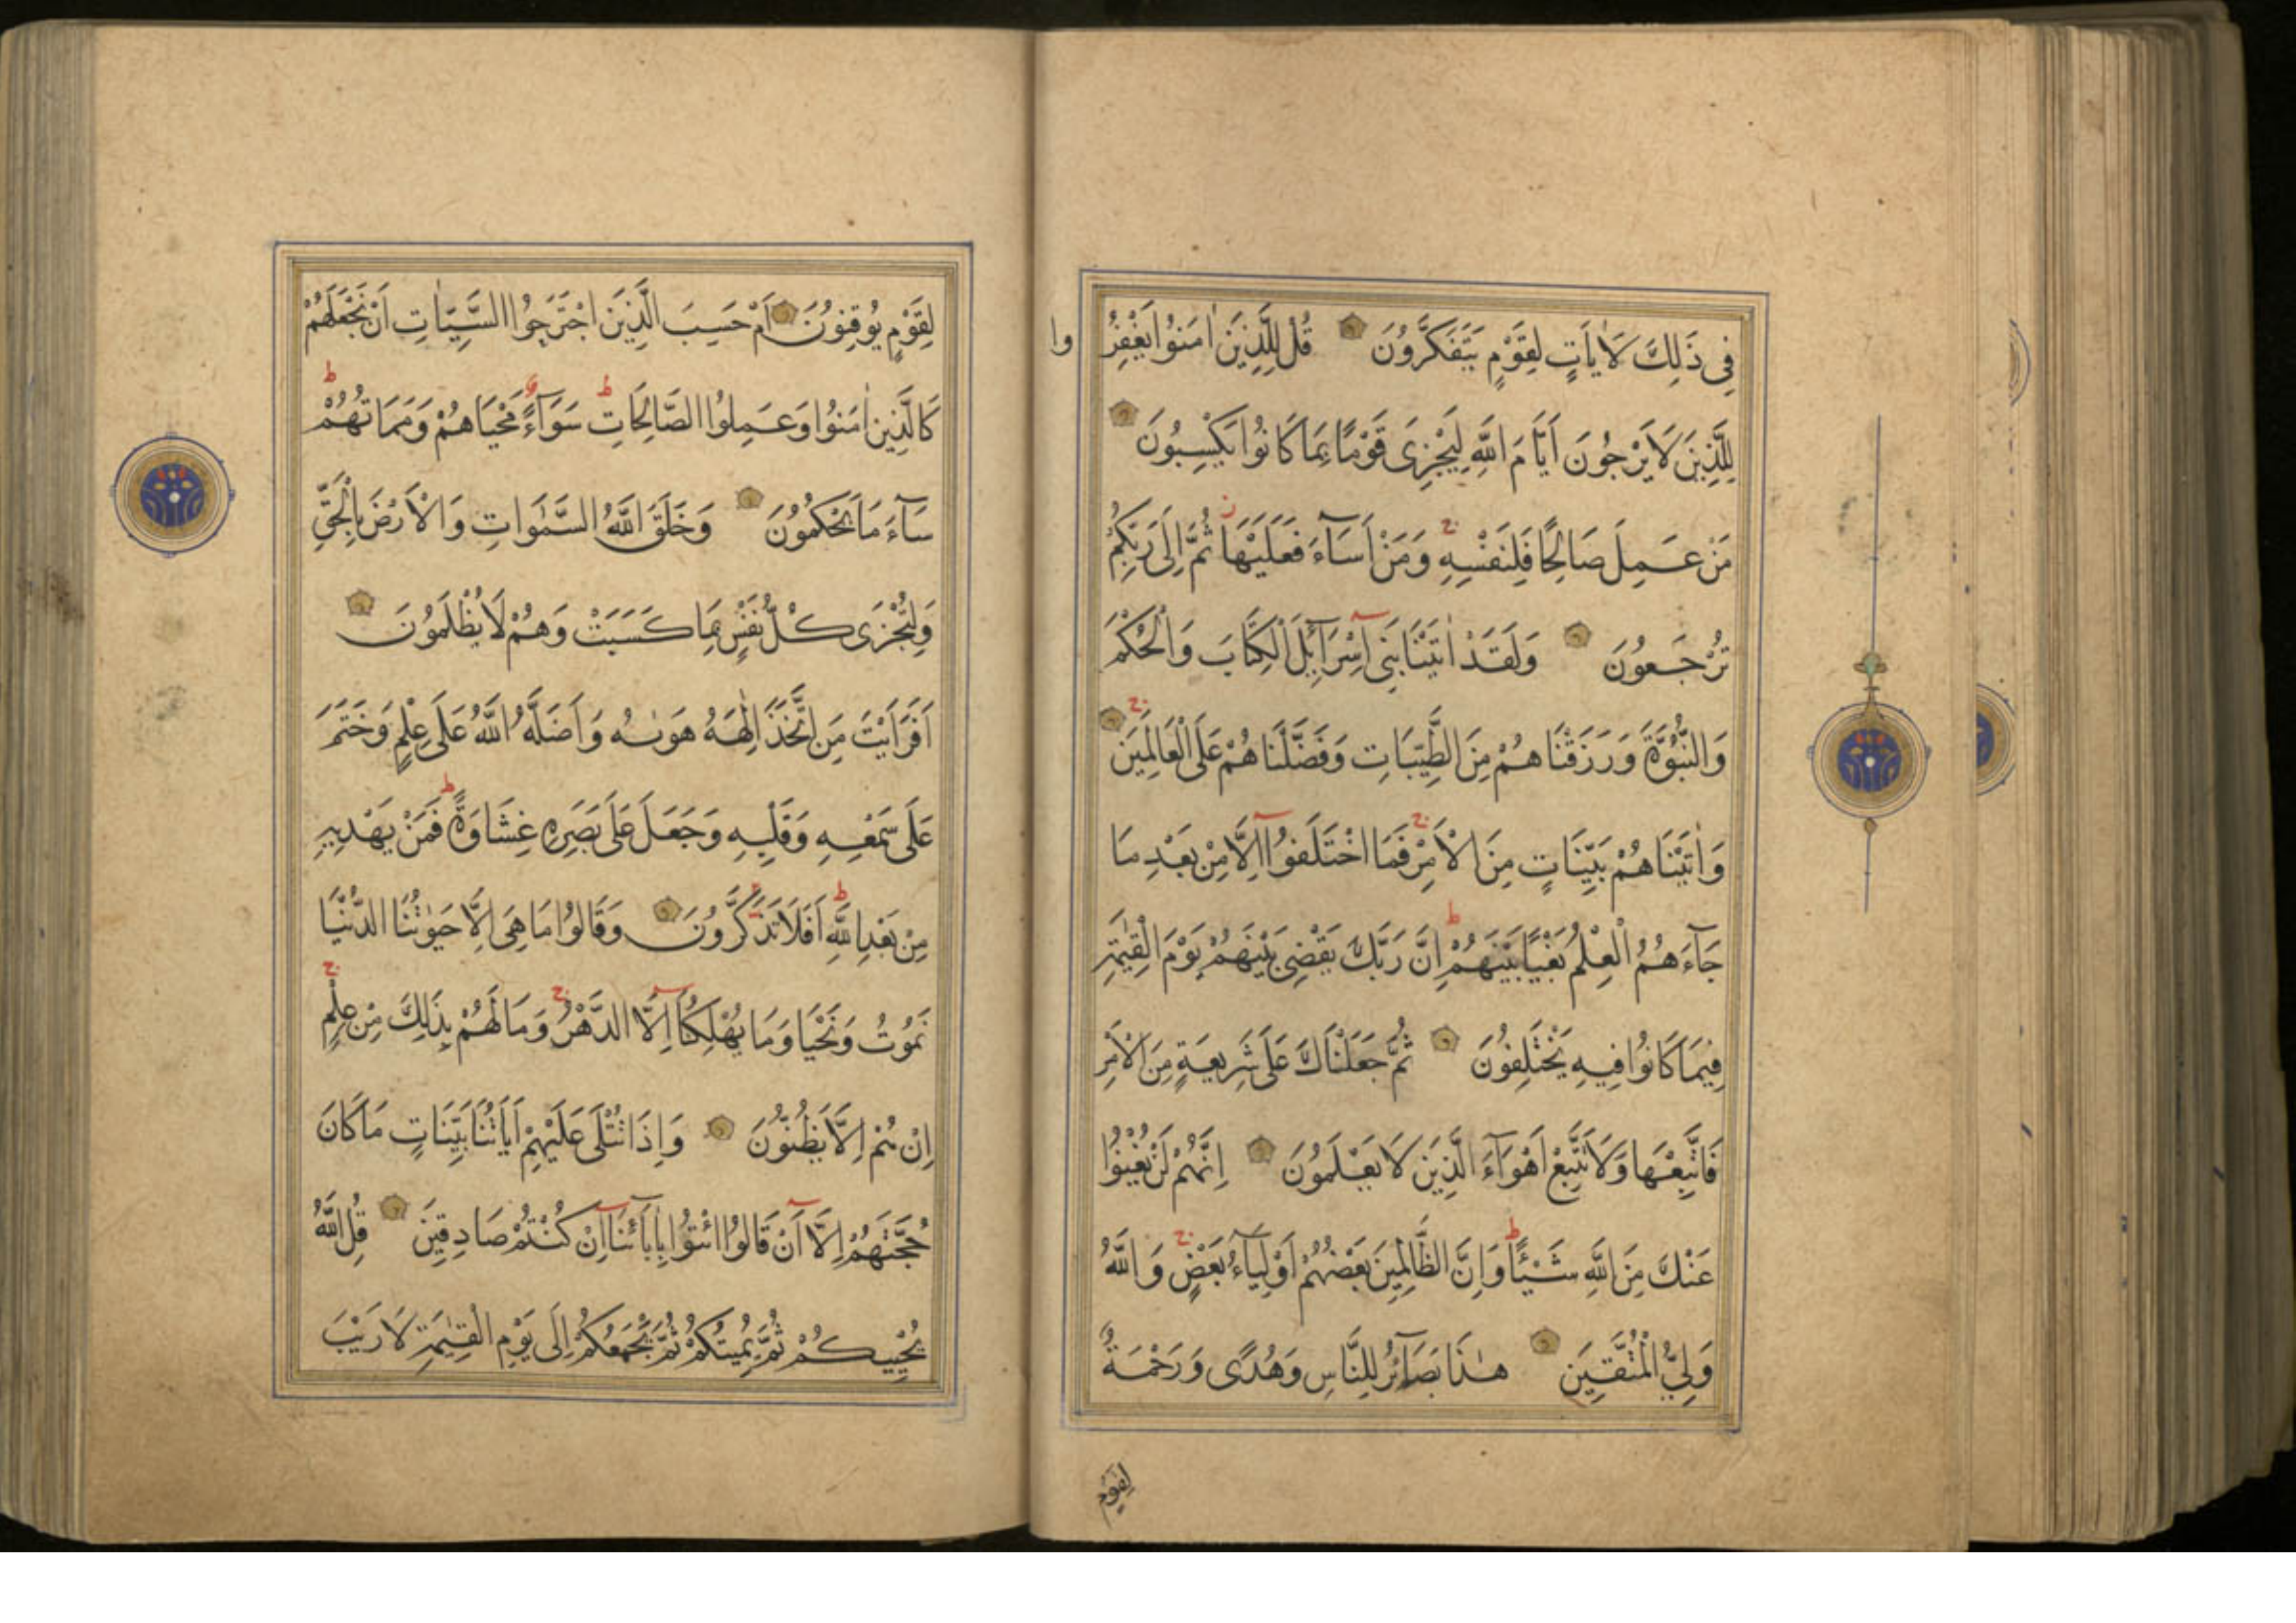 فِي ذَلِكَ لَاٰيَاتٍ لِقَوْمٍ يَتَفَكَّرُونَ قُلْ لِلَّذِينَ اٰمَنُوا يَغْفِرُ
وا
لِلَّذِينَ لَا يَرْجُونَ اَيَّامَ اللَّهِ لِيَجْزِيَ قَوْمًا بِمَا كَانُوا يَكْسِبُونَ
مَنْ عَمِلَ صَالِحًا فَلِنَفْسِهِ وَمَنْ اَسَآءَ فَعَلَيْهَا ثُمَّ اِلَى رَبِّكُمْ
تُرْجَعُونَ وَلَقَدْ اٰتَيْنَا بَنِي اِسْرَآئِلَ الْكِتَابَ وَالْحُكْمَ
وَالنُّبُوَّةَ وَرَزَقْنَاهُمْ مِنَ الطَّيِّبَاتِ وَفَضَّلْنَاهُمْ عَلَى الْعَالَمِينَ
وَاٰتَيْنَاهُمْ بَيِّنَاتٍ مِنَ الْاَمْرِ فَمَا اخْتَلَفُوا اِلَّا مِنْ بَعْدِ مَا
جَآءَهُمُ الْعِلْمُ بَغْيًا بَيْنَهُمْ اِنَّ رَبَّكَ يَقْضِي بَيْنَهُمْ يَوْمَ الْقِيٰمَةِ
فِيمَا كَانُوا فِيهِ يَخْتَلِفُونَ ثُمَّ جَعَلْنَاكَ عَلَى شَرِيعَةٍ مِنَ الْاَمْرِ
فَاتَّبِعْهَا وَلَا تَتَّبِعْ اَهْوَآءَ الَّذِينَ لَا يَعْلَمُونَ اِنَّهُمْ لَنْ يُغْنُوا
عَنْكَ مِنَ اللَّهِ شَيْئًا وَاِنَّ الظَّالِمِينَ بَعْضُهُمْ اَوْلِيَآءُ بَعْضٍ وَاللَّهُ
وَلِيُّ الْمُتَّقِينَ هٰذَا بَصَآئِرُ لِلنَّاسِ وَهُدًى وَرَحْمَةٌ
لقوم
لِقَوْمٍ يُوقِنُونَ اَمْ حَسِبَ الَّذِينَ اجْتَرَحُوا السَّيِّاٰتِ اَنْ نَجْعَلَهُمْ
كَالَّذِينَ اٰمَنُوا وَعَمِلُوا الصَّالِحَاتِ سَوَآءً مَحْيَاهُمْ وَمَمَاتُهُمْ
سَآءَ مَا يَحْكُمُونَ وَخَلَقَ اللَّهُ السَّمٰوَاتِ وَالْاَرْضَ بِالْحَقِّ
وَلِتُجْزَى كُلُّ نَفْسٍ بِمَا كَسَبَتْ وَهُمْ لَا يُظْلَمُونَ
اَفَرَاَيْتَ مَنِ اتَّخَذَ اِلٰهَهُ هَوٰيهُ وَاَضَلَّهُ اللَّهُ عَلَى عِلْمٍ وَخَتَمَ
عَلَى سَمْعِهِ وَقَلْبِهِ وَجَعَلَ عَلَى بَصَرِهِ غِشَاوَةً فَمَنْ يَهْدِيهِ
مِنْ بَعْدِ اللَّهِ اَفَلَا تَذَكَّرُونَ وَقَالُوا مَا هِيَ اِلَّا حَيٰوتُنَا الدُّنْيَا
نَمُوتُ وَنَحْيَا وَمَا يُهْلِكُنَا اِلَّا الدَّهْرُ وَمَا لَهُمْ بِذَلِكَ مِنْ عِلْمٍ
اِنْ هُمْ اِلَّا يَظُنُّونَ وَاِذَا تُتْلَى عَلَيْهِمْ اٰيَاتُنَا بَيِّنَاتٍ مَا كَانَ
حُجَّتَهُمْ اِلَّا اَنْ قَالُوا ائْتُوا بِاٰبَآئِنَا اِنْ كُنْتُمْ صَادِقِينَ قُلِ اللَّهُ
يُحْيِيكُمْ ثُمَّ يُمِيتُكُمْ ثُمَّ يَجْمَعُكُمْ اِلَى يَوْمِ الْقِيٰمَةِ لَا رَيْبَ